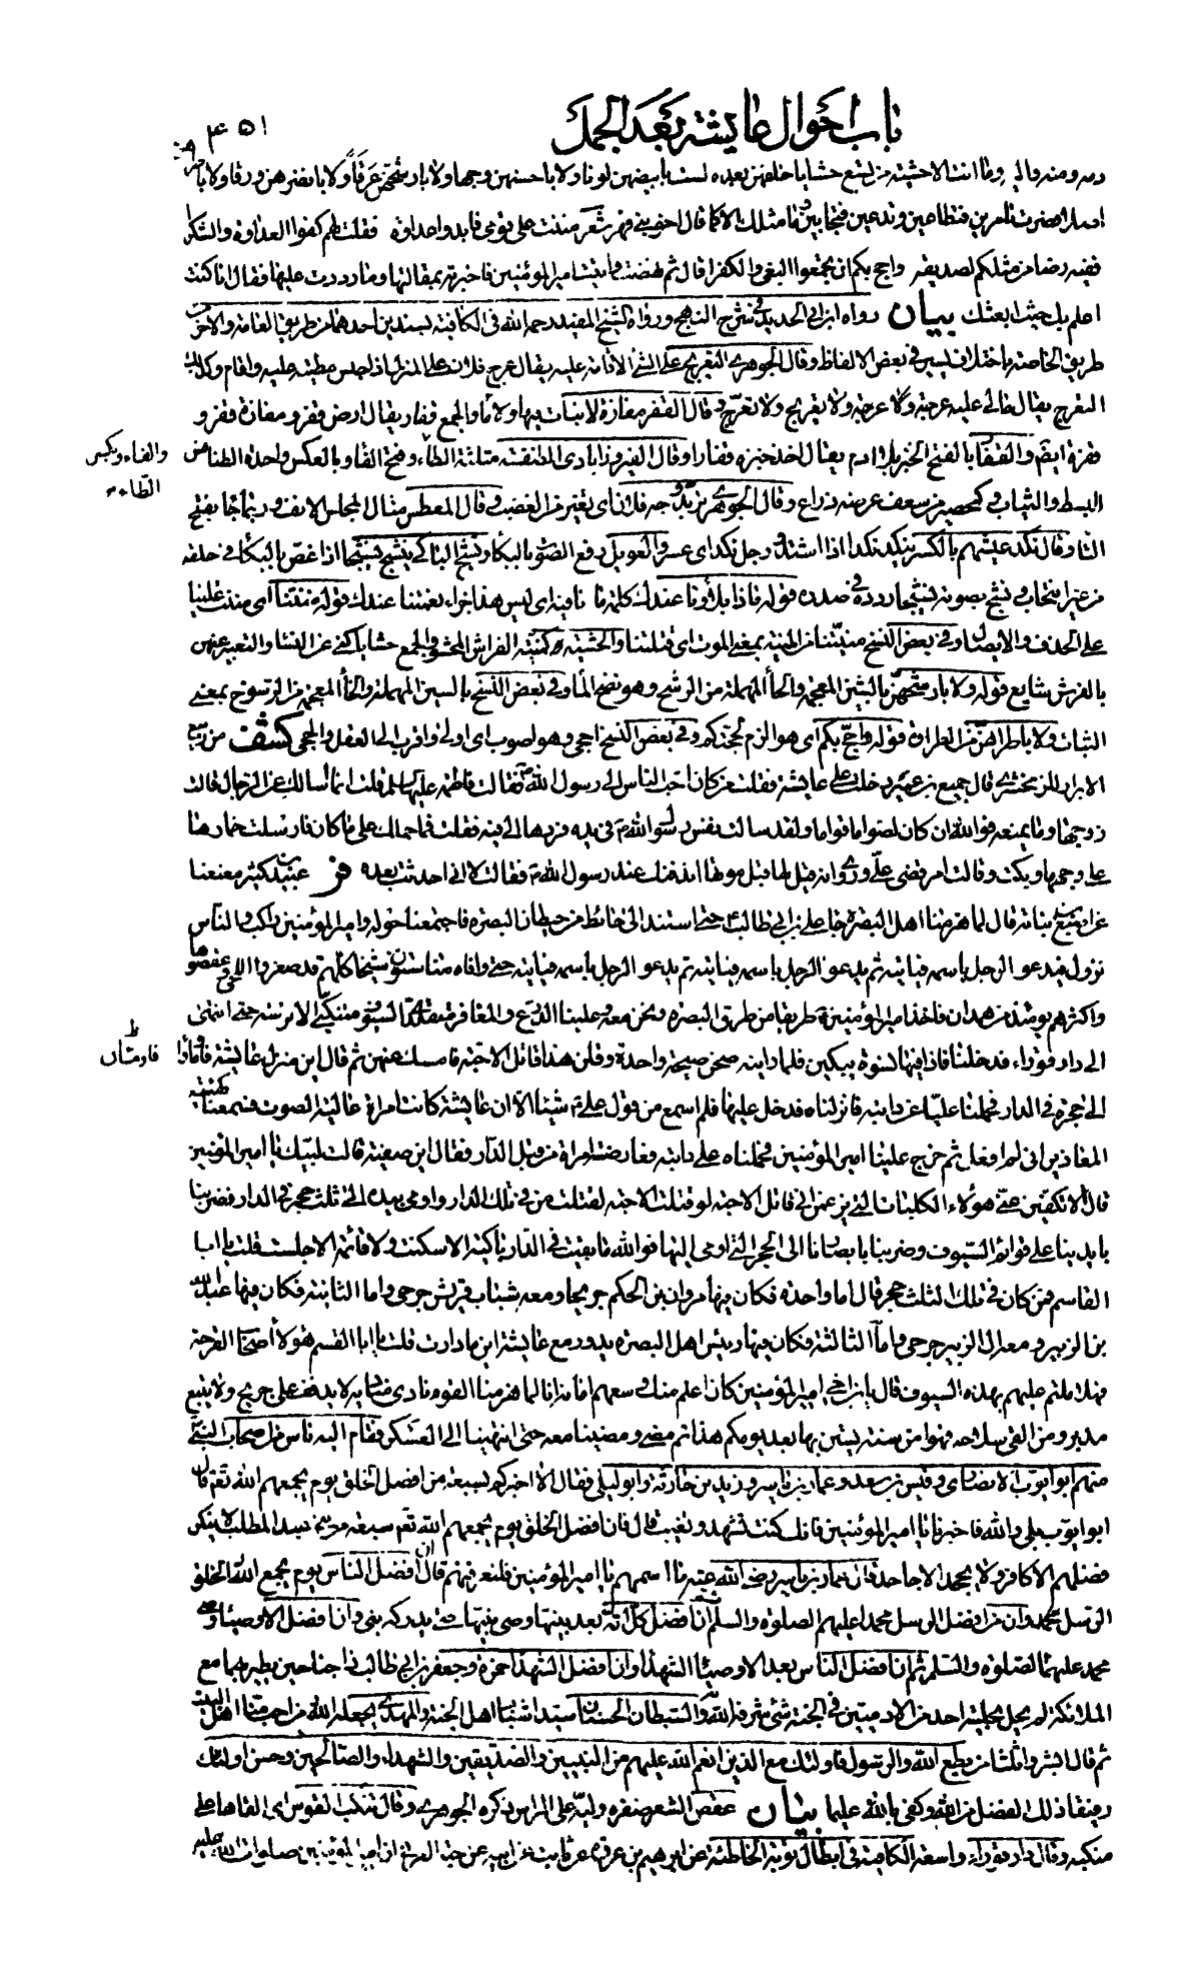 باب احوال عايشة بعد الجمل
٤٥١
دمه ومنه واليه وما انت الا حشية من تسع حشايا خلفهن بعده لست بابيضهن لونا ولا باحسنهن وجها ولا بارشحهن عرقا ولا بانضرهن ورقا ولا
اصلا فصرت تامرين فتطاعين وتدعين فتجابين وما مثلك الا كما قال اخو بني فهر شعر مننت على قومي فابدوا عداوة فقلت لهم كفوا العداوة والشكر
ففيه رضا من مثلكم لصديقه واحج بكم ان تجمعوا البغي والكفرا قال ثم نهضت واتيت امير المؤمنين فاخبرته بمقالتها وما رددت عليها فقال انا كنت
اعلم بك حيث ابعثك بيان رواه ابن ابي الحديد في شرح النهج ورواه الشيخ المفيد رحمه الله في الكافية بسندين احدهما من طريق العامة والاخر من
طريق الخاصة باختلاف يسير في بعض الالفاظ وقال الجوهري التعريج على الشئ الاقامة عليه يقال عرج فلان على المنزل اذا حبس مطيته عليه واقام وكذلك
التعرج يقال مالي عليه عرجة ولا عرجة ولا تعريج ولا تعرج وقال القفر مفازة لا نبات فيها ولا ماء والجمع قفار يقال ارض قفر ومفازة قفر و
قفرة ايضا والقفار بالفتح الخبز بلا ادم يقال اخذ خبزه قفارا وقال الفيروزابادي الطنفسة مثلثة الطاء وفتح الفاء وبالعكس واحدة الطنافس
والفاء وبكسر
الطاء
البسط والثياب وكحصير من سعف عرضه ذراع وقال الجوهري تربد وجه فلان اي تغير من الغضب وقال المعطس مثال المجلس الانف وربما جاء بفتح
الطاء وقال نكد عيشهم بالكسر ينكد نكدا اذا اشتد ورجل نكد اي عسر والعويل رفع الصوت بالبكاء ونشج الباكي ينشج نشيجا اذا غص بالبكاء في حلقه
من غير انتحاب ونشج بصوته نشيجا ردده في صدره قوله ماذا بلاؤنا عندك كلمة ما نافية اي ليس هذا جزاء نعمتنا عندك قوله مننتنا اي مننت علينا
على الحذف والايصال وفي بعض النسخ منيتنا من المنية بمعنى الموت اي قتلتنا والحشية كمنية الفراش المحشو والجمع حشايا كني عن النساء والتعبير عنهن
بالفرش شايع قوله ولا بارشحهن بالشين المعجمة والحاء المهملة من الرشح وهو نضح الماء وفي بعض النسخ بالسين المهملة والخاء المعجمة من الرسوخ بمعنى
الثبات ولا باطراهن من الطراوة قوله واحج بكم اي هو الزم لحجتكم وفي بعض النسخ احجى وهو اصوب اي اولى واقرب الى العقل والحجى كشف من ربيع
الابرار للزمخشري قال جميع بن عمير دخلت على عايشة فقلت من كان احب الناس الى رسول الله ص فقالت فاطمة عليها السلم قلت انما اسالك عن الرجال قالت
زوجها وما يمنعه فوالله ان كان لصواما قواما ولقد سالت نفس رسول الله ص في يده فردها الى فيه فقلت فما حملك على ما كان فارسلت خمارها
على وجهها وبكت وقالت امر قضي علي وروي انه قيل لها قبل موتها اندفنك عند رسول الله ص فقالت لا اني احدثت بعده فر عبيد بن كثير معنعنا
عن اصبغ بن نباتة قال لما هزمنا اهل البصرة جاء علي بن ابي طالب ع حتى استند الى حائط من حيطان البصرة فاجتمعنا حوله وامير المؤمنين راكب والناس
نزول فيدعو الرجل باسمه فياتيه ثم يدعو الرجل باسمه فياتيه ثم يدعو الرجل باسمه فياتيه حتى وافاه منا ستون شيخا كلهم قد صغروا اللحى وعقصوها
واكثرهم يومئذ من همدان فاخذ امير المؤمنين ع طريقا من طريق البصرة ونحن معه وعلينا الدرع والمغافر متقلدي السيوف متنكبي الاترسة حتى انتهى
الى دار قوراء فدخلنا فاذا فيها نسوة يبكين فلما راينه صحن صيحة واحدة وقلن هذا قاتل الاحبة فامسك عنهن ثم قال اين منزل عايشة فاومئوا
فاومئن ظ
الى حجرة في الدار فحملنا عليا عن دابته فانزلناه فدخل عليها فلم اسمع من قول علي ع شيئا الا ان عايشة كانت امراة عالية الصوت فسمعنا كهيئة
المعاذير اني لم افعل ثم خرج علينا امير المؤمنين فحملناه على دابته فعارضته امراة من قبل الدار فقال اين صفية قالت لبيك يا امير المؤمنين
قال الا تكفين عني هؤلاء الكلبات التي يزعمن اني قاتل الاحبة لو قتلت الاحبة لقتلت من في تلك الدار واومى بيده الى ثلث حجر في الدار فضربنا
بايدينا على قوائم السيوف وضربنا بابصارنا الى الحجر التي اومى اليها فوالله ما بقيت في الدار باكية الا سكتت ولا قائمة الا جلست قلت يا ابا
القاسم فمن كان في تلك الثلث حجر قال اما واحدة فكان فيها مروان بن الحكم جريحا ومعه شباب قريش جرحى واما الثانية فكان فيها عبد الله
بن الزبير ومعه ال الزبير جرحى واما الثالثة فكان فيها رئيس اهل البصرة يدور مع عايشة اين ما دارت قلت يا ابا القسم هؤلاء اصحاب القرحة
فهلا ملتم عليهم بهذه السيوف قال يابن اخي امير المؤمنين كان اعلم منك وسعهم امانه انا لما هزمنا القوم نادى مناديه لا يدفف على جريح ولا يتبع
مدبر ومن القى سلاحه فهو امن سنة يستن بها بعد يومكم هذا ثم مضى ومضينا معه حتى انتهينا الى العسكر فقام اليه ناس من اصحاب النبي ص
منهم ابو ايوب الانصاري وقيس بن سعد وعمار بن ياسر وزيد بن حارثة وابو ليلى فقال الا اخبركم بسبعة من افضل الخلق يوم يجمعهم الله تعم قال
ابو ايوب بلى والله فاخبرنا يا امير المؤمنين فانك كنت تشهد ونغيب قال فان افضل الخلق يوم يجمعهم الله تعم سبعة من بني عبد المطلب لا ينكر
فضلهم الا كافر ولا يجحد الا جاحد قال عمار بن ياسر رضي الله عنه ما اسمهم يا امير المؤمنين فلنعرفنهم قال ان افضل الناس يوم يجمع الله الخلق
الرسل محمد وان من افضل الرسل محمدا عليهم الصلوة والسلم ثم ان افضل كل امة بعد نبيها وصي نبيها حتى يدركه نبي وان افضل الاوصياء وصي
محمد عليهما الصلوة والسلم ثم ان افضل الناس بعد الاوصياء الشهداء وان افضل الشهداء حمزة وجعفر بن ابي طالب ذا جناحين يطير بهما مع
الملائكة لم يحل بحليته احد من الادميين في الجنة شئ شرفه الله والسبطان الحسنان سيدا شباب اهل الجنة والمهدي يجعله الله من احب منا اهل البيت
ثم قال ابشروا ثلثا من يطع الله والرسول فاولئك مع الذين انعم الله عليهم من النبيين والصديقين والشهداء والصالحين وحسن اولئك
رفيقا ذلك الفضل من الله وكفى بالله عليما بيان عقص الشعر ضفره وليه على الراس ذكره الجوهري وقال تنكب القوس اي القاها على
منكبه وقال دار قوراء واسعة الكافية في ابطال توبة الخاطئة عن ابرهيم بن عروة عن ثابت عن ابيه عن حبة العرني ان امير المؤمنين صلوات الله عليه